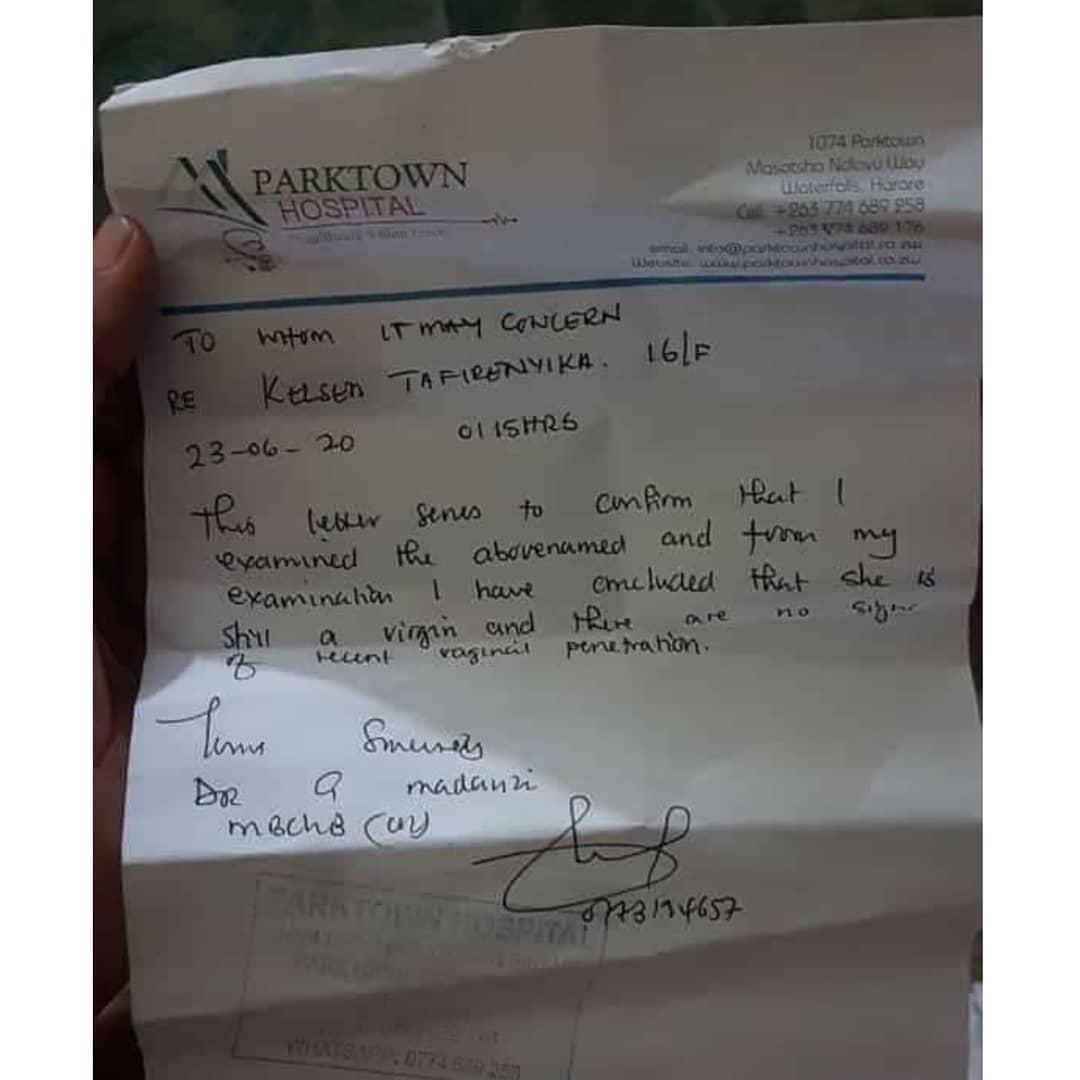 PARKTOWN
HOSPITAL
1074 Parktown
Masotsha Ndlovu Way
Waterfalls, Harare
Cell: +263 774 689 258
+263 774 689 176
email: info@parktownhospital.co.zw
Website: www.parktownhospital.co.zw
TO WHOM IT MAY CONCERN
RE KELSEA TAFIRENYIKA. 16/F
23-06-20 0115HRS
This letter serves to confirm that I
examined the abovenamed and from my
examination I have concluded that she is
still a virgin and there are no signs
of recent vaginal penetration.
Yours Sincerely
DR G madanzi
MBCHB (UZ)
0773194657
PARKTOWN HOSPITAL
WHATSAPP: 0774 689 258